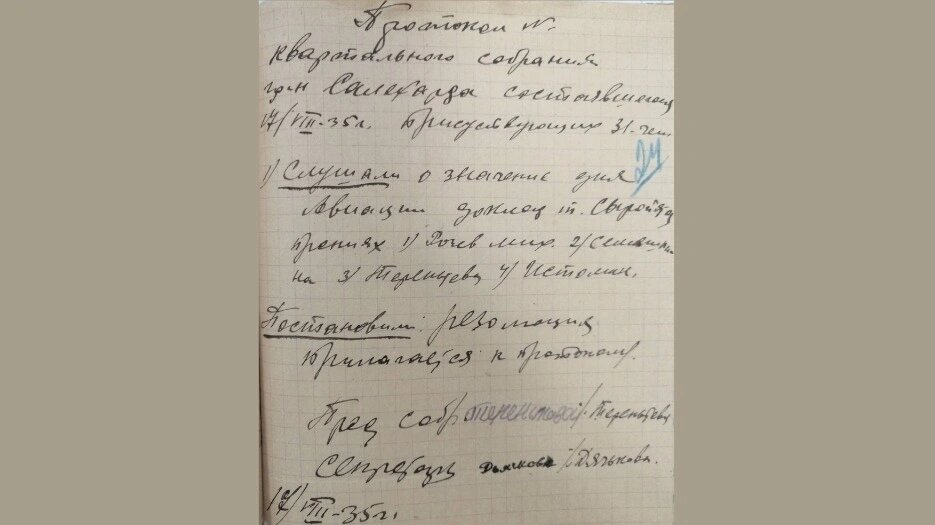 Протокол №.
квартального собрания
гр-н Салехарда состоявшегося
17/VIII-35г. Присутствующих 31-чел.
24
1) Слушали о значение дня
Авиации доклад т.
прениях 1) Рочев мих. 2) Семяшки
на 3) Терентьев 4) Истомин.
Постановили: резолюция
прилагается к протоколу.
Пред собр /Терентьева
Секретарь Дьячкова /Дячькова.
17/VIII-35г.